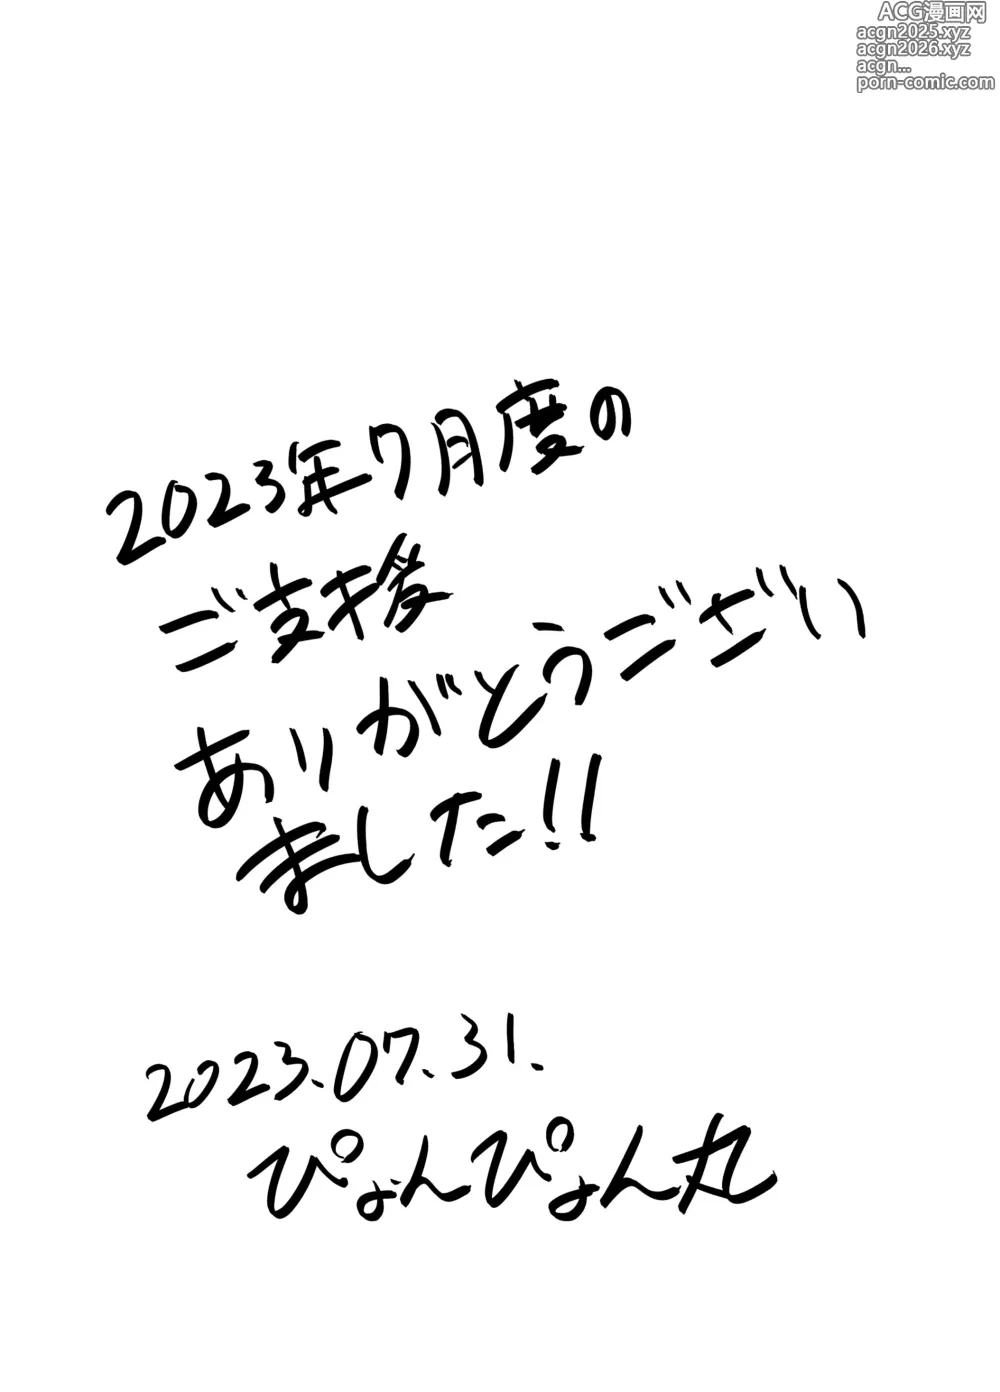 ACG漫画网
acgn2025.xyz
acgn2026.xyz
acgn...
porn-comic.com
2023年7月度の
ご支援
ありがとうござい
ました!!
2023.07.31.
ぴょんぴょん丸